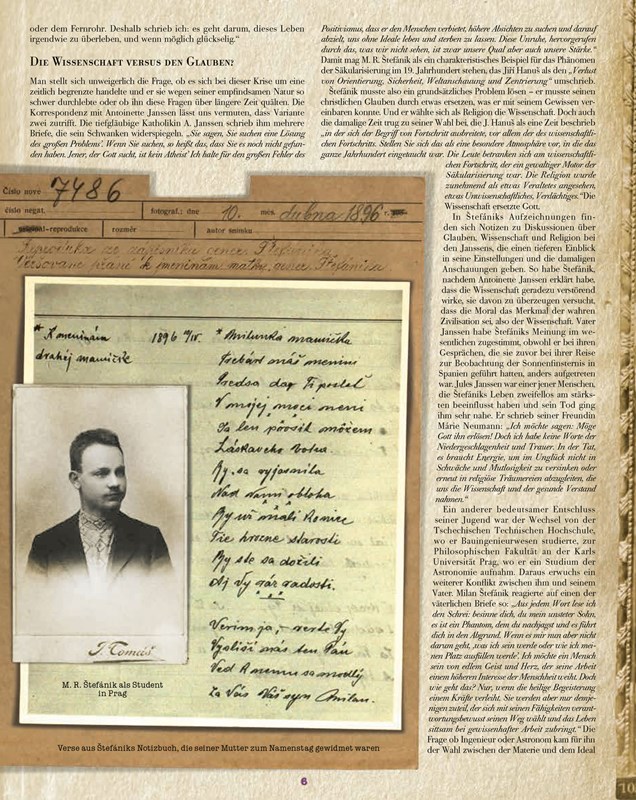 oder dem Fernrohr. Deshalb schrieb ich: es geht darum, dieses Leben
irgendwie zu überleben, und wenn möglich glückselig.“
DIE WISSENSCHAFT VERSUS DEN GLAUBEN?
Man stellt sich unweigerlich die Frage, ob es sich bei dieser Krise um eine
zeitlich begrenzte handelte und er sie wegen seiner empfindsamen Natur so
schwer durchlebte oder ob ihn diese Fragen über längere Zeit quälten. Die
Korrespondenz mit Antoinette Janssen lässt uns vermuten, dass Variante
zwei zutrifft. Die tiefgläubige Katholikin A. Janssen schrieb ihm mehrere
Briefe, die sein Schwanken widerspiegeln. „Sie sagen, Sie suchen eine Lösung
des ‚großen Problems‘. Wenn Sie suchen, so heißt das, dass Sie es noch nicht gefun-
den haben. Jener, der Gott sucht, ist kein ‚Atheist‘ Ich halte für den großen Fehler des
Positivismus, dass er den Menschen verbietet, höhere Absichten zu suchen und darauf
abzielt, uns ohne Ideale leben und sterben zu lassen. Diese Unruhe, hervorgerufen
durch das, was wir nicht sehen, ist zwar unsere Qual aber auch unsere Stärke.“
Damit mag M. R. Štefánik als ein charakteristisches Beispiel für das Phänomen
der Säkularisierung im 19. Jahrhundert stehen, das Jiří Hanuš als den „Verlust
von Orientierung, Sicherheit, Weltanschauung und Zentrierung“ umschrieb.
Štefánik musste also ein grundsätzliches Problem lösen – er musste seinen
christlichen Glauben durch etwas ersetzen, was er mit seinem Gewissen ver-
einbaren konnte. Und er wählte sich als Religion die Wissenschaft. Doch auch
die damalige Zeit trug zu seiner Wahl bei, die J. Hanuš als eine Zeit beschrieb
„in der sich der Begriff von Fortschritt ausbreitete, vor allem der des wissenschaftli-
chen Fortschritts. Stellen Sie sich das als eine besondere Atmosphäre vor, in die das
ganze Jahrhundert eingetaucht war. Die Leute betranken sich am wissenschaftli-
chen Fortschritt, der ein gewaltiger Motor der
Säkularisierung war. Die Religion wurde
zunehmend als etwas Veraltetes angesehen,
etwas Unwissenschaftliches, Verdächtiges.“Die
Wissenschaft ersetzte Gott.
In Štefániks Aufzeichnungen fin-
den sich Notizen zu Diskussionen über
Glauben, Wissenschaft und Religion bei
den Janssens, die einen tieferen Einblick
in seine Einstellungen und die damaligen
Anschauungen geben. So habe Štefánik,
nachdem Antoinette Janssen erklärt habe,
dass die Wissenschaft geradezu verstörend
wirke, sie davon zu überzeugen versucht,
dass die Moral das Merkmal der wahren
Zivilisation sei, also der Wissenschaft. Vater
Janssen habe Štefániks Meinung im we-
sentlichen zugestimmt, obwohl er bei ihren
Gesprächen, die sie zuvor bei ihrer Reise
zur Beobachtung der Sonnenfinsternis in
Spanien geführt hatten, anders aufgetreten
war. Jules Janssen war einer jener Menschen,
die Štefániks Leben zweifellos am stärks-
ten beeinflusst haben und sein Tod ging
ihm sehr nahe. Er schrieb seiner Freundin
Márie Neumann: „Ich möchte sagen: Möge
Gott ihn erlösen! Doch ich habe keine Worte der
Niedergeschlagenheit und Trauer. In der Tat,
es braucht Energie, um im Unglück nicht in
Schwäche und Mutlosigkeit zu versinken oder
erneut in religiöse Träumereien abzugleiten, die
uns die Wissenschaft und der gesunde Verstand
nahmen.“
Ein anderer bedeutsamer Entschluss
seiner Jugend war der Wechsel von der
Tschechischen Technischen Hochschule,
wo er Bauingenieurwesen studierte, zur
Philosophischen Fakultät an der Karls
Universität Prag, wo er ein Studium der
Astronomie aufnahm. Daraus erwuchs ein
weiterer Konflikt zwischen ihm und seinem
Vater. Milan Štefánik reagierte auf einen der
väterlichen Briefe so: „Aus jedem Wort lese ich
den Schrei: besinne dich, du mein unsteter Sohn,
es ist ein Phantom, dem du nachjagst und es führt
dich in den Abgrund. Wenn es mir nun aber nicht
darum geht, ‚was ich sein werde oder wie ich mei-
nen Platz ausfüllen werde‘. Ich möchte ein Mensch
sein von edlem Geist und Herz, der seine Arbeit
einem höheren Interesse der Menschheit weiht. Doch
wie geht das? Nur, wenn die heilige Begeisterung
einem Kräfte verleiht. Sie werden aber nur demje-
nigen zuteil, der sich mit seinen Fähigkeiten verant-
wortungsbewusst seinen Weg wählt und das Leben
sittsam bei gewissenhafter Arbeit zubringt.“ Die
Frage ob Ingenieur oder Astronom kam für ihn
der Wahl zwischen der Materie und dem Ideal
Číslo nové 7486
číslo negat.
fotograf.: dne 10. měs. dubna 1896 r.
-reprodukce
rozměr
autor snímku
Reprodukce ze zápisníku gener. Štefánika
Veršované přání k meninám matky gener. Štefánika
* K meninám
drahej mamičke
1896 10/IV.
* Milunká mamička
Tvoj
V mojej moci není
Ja len prosiť môžem
Láskavého Boha
By sa vyjasnila
Nad vami obloha
By už mali konice
Vie hrozne starosti
By ste sa dožili
Aj vy rás radosti.
Verím ja, verte Vy
Vyslyší nás ten Pán
Veď k nemu sa modlí
Za Vás Váš syn Milan.
J. Tomáš
M. R. Štefánik als Student
in Prag
Verse aus Štefániks Notizbuch, die seiner Mutter zum Namenstag gewidmet waren
6
10